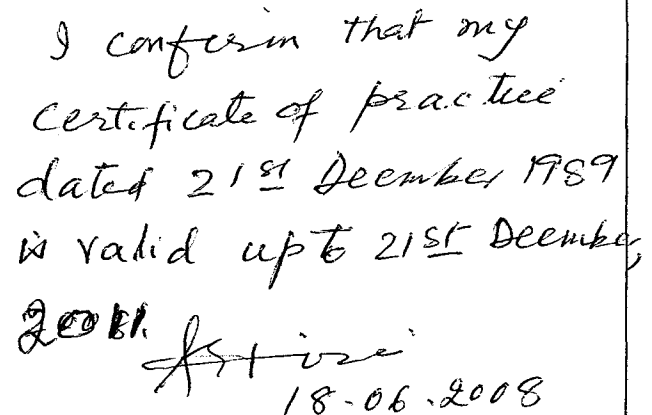 I confirm that my
certificate of practice
dated 21st Deember 1989
is valid upto 21st Deember,
2011.
18-06-2008